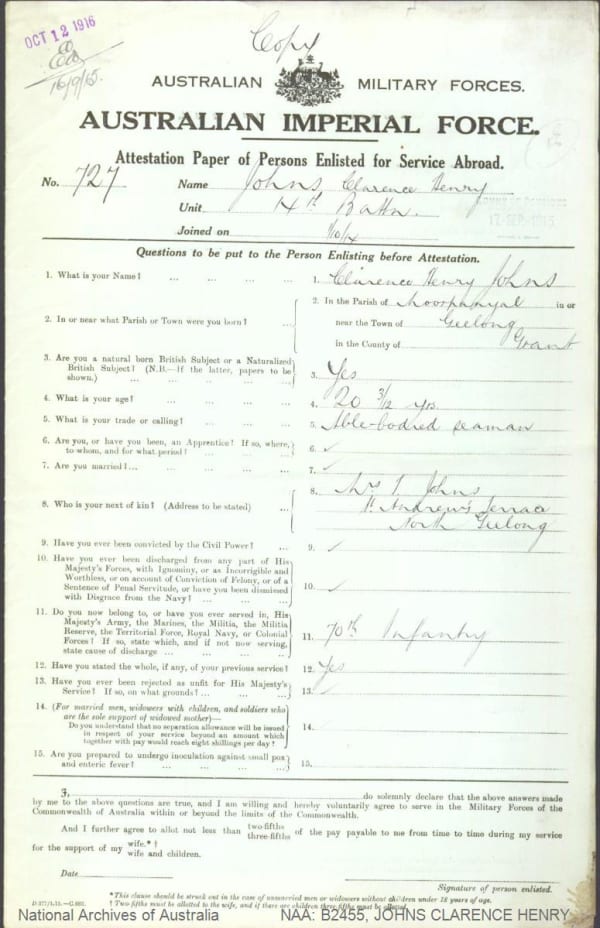 OCT 12 1916
Copy
16/9/15.
AUSTRALIAN MILITARY FORCES.
AUSTRALIAN IMPERIAL FORCE.
Attestation Paper of Persons Enlisted for Service Abroad.
No. 727 Name Johns Clarence Henry
Unit 14th Battn.
17 SEP 1915
Joined on
Questions to be put to the Person Enlisting before Attestation.
1. What is your Name? ... ... ... ... 1. Clarence Henry Johns
2. In or near what Parish or Town were you born? ... 2. In the Parish of Moorpanyal in or
near the Town of Geelong
in the County of Grant
3. Are you a natural born British Subject or a Naturalized
British Subject? (N.B.—If the latter, papers to be
shown.) ... ... ... ... 3. Yes
4. What is your age? ... ... ... ... 4. 20 3/12 yrs.
5. What is your trade or calling? ... ... ... 5. Able-bodied seaman
6. Are you, or have you been, an Apprentice? If so, where,
to whom, and for what period? ... ... ... 6. ✓
7. Are you married?... ... ... ... 7. ✓
8. Who is your next of kin? (Address to be stated) ... 8. Mrs T. Johns
St Andrew's Terrace
North Geelong
9. Have you ever been convicted by the Civil Power? ... 9. ✓
10. Have you ever been discharged from any part of His
Majesty's Forces, with Ignominy, or as Incorrigible and
Worthless, or on account of Conviction of Felony, or of a
Sentence of Penal Servitude, or have you been dismissed
with Disgrace from the Navy? ... ... ... 10. ✓
11. Do you now belong to, or have you ever served in, His
Majesty's Army, the Marines, the Militia, the Militia
Reserve, the Territorial Force, Royal Navy, or Colonial
Forces? If so, state which, and if not now serving,
state cause of discharge ... ... ... 11. 70th Infantry
12. Have you stated the whole, if any, of your previous service? 12. Yes
13. Have you ever been rejected as unfit for His Majesty's
Service? If so, on what grounds? ... ... ... 13. ✓
14. (For married men, widowers with children, and soldiers who
are the sole support of widowed mother)—
Do you understand that no separation allowance will be issued
in respect of your service beyond an amount which
together with pay would reach eight shillings per day? 14.
15. Are you prepared to undergo inoculation against small pox
and enteric fever? ... ... ... ... 15.
I, do solemnly declare that the above answers made
by me to the above questions are true, and I am willing and hereby voluntarily agree to serve in the Military Forces of the
Commonwealth of Australia within or beyond the limits of the Commonwealth.
And I further agree to allot not less than two-fifths three-fifths of the pay payable to me from time to time during my service
for the support of my wife.* † wife and children.
Date
Signature of person enlisted.
*This clause should be struck out in the case of unmarried men or widowers without children under 18 years of age.
† Two-fifths must be allotted to the wife, and if there are children three-fifths must be allotted.
National Archives of Australia NAA: B2455, JOHNS CLARENCE HENRY